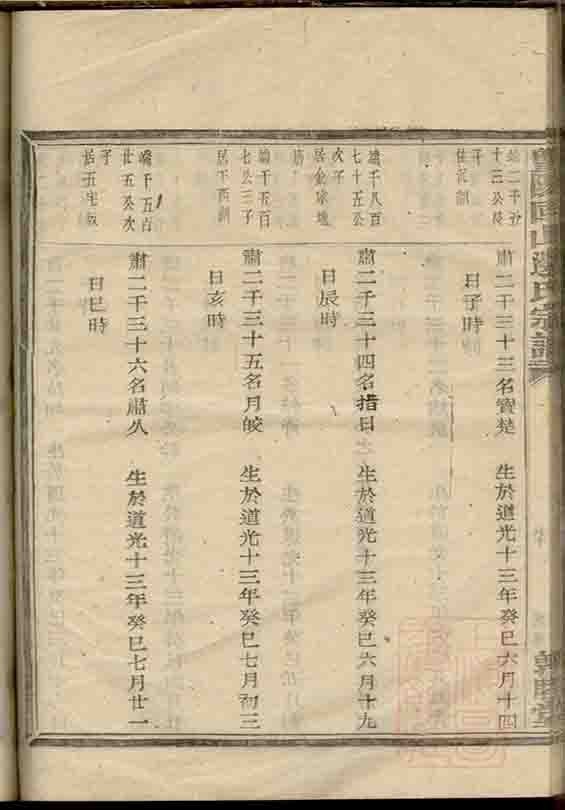 十三公長
子
住花訓
肅二千三十三名寶楚　生於道光十三年癸巳六月十四
日子時
端千八百
七十五公
次子
居金家塢
肅二千三十四名措日　生於道光十三年癸巳六月十九
日辰時
端千五百
七公三子
居下西訓
肅二千三十五名月皎　生於道光十三年癸巳七月初三
日亥時
端千五百
廿五公次
子
居五宅坂
肅二千三十六名肅久　生於道光十三年癸巳七月廿一
日巳時